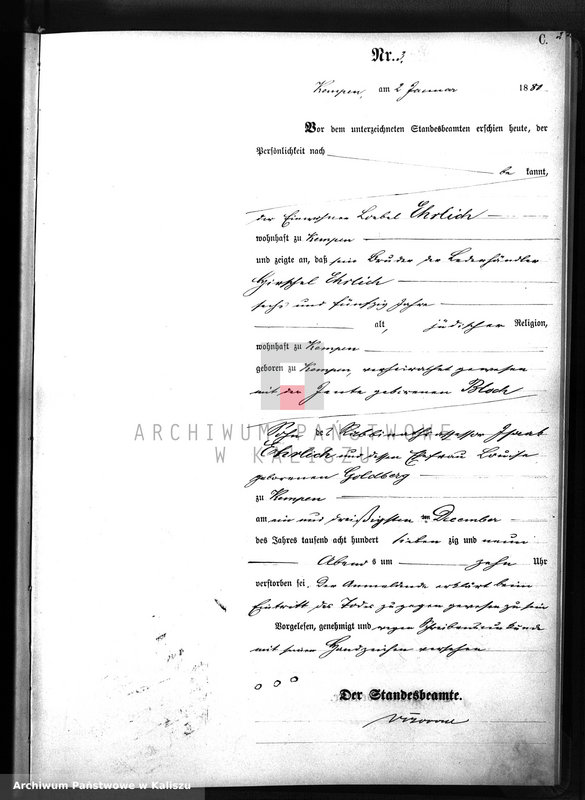 C.
Nr. 3.
Kempen, am 2 Januar 1880
Vor dem unterzeichneten Standesbeamten erschien heute, der
Persönlichkeit nach
be kannt,
der Einwohner Loebel Ehrlich
wohnhaft zu Kempen
und zeigte an, daß sein Bruder der Lederhändler
Hirschel Ehrlich
sechs und fünfzig Jahre
alt, jüdischer Religion,
wohnhaft zu Kempen
geboren zu Kempen, verheirathet gewesen
mit der Jente geborenen Bloch
Sohn des Rabbinats Ehrlich und dessen Ehefrau
geborenen Goldberg
zu Kempen
am ein und dreißigsten December
des Jahres tausend acht hundert sieben zig und neun
Abends um zehn Uhr
verstorben sei, Der Anmeldende erklärt beim
Eintritt des Todes zugegen gewesen zu sein
Vorgelesen, genehmigt und wegen Schreibensunkunde
mit seinem Handzeichen versehen
o o o
Der Standesbeamte.
ARCHIWUM PAŃSTWOWE
W KALISZU
Archiwum Państwowe w Kaliszu